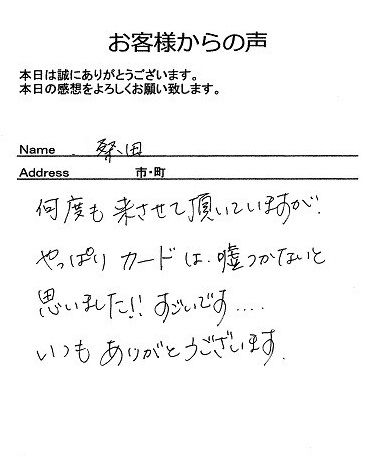 お客様からの声
本日は誠にありがとうございます。
本日の感想をよろしくお願い致します。
Name 桑田
Address 市・町
何度も来させて頂いていますが、
やっぱりカードは嘘つかないと
思いました!!すごいです....
いつもありがとうございます.